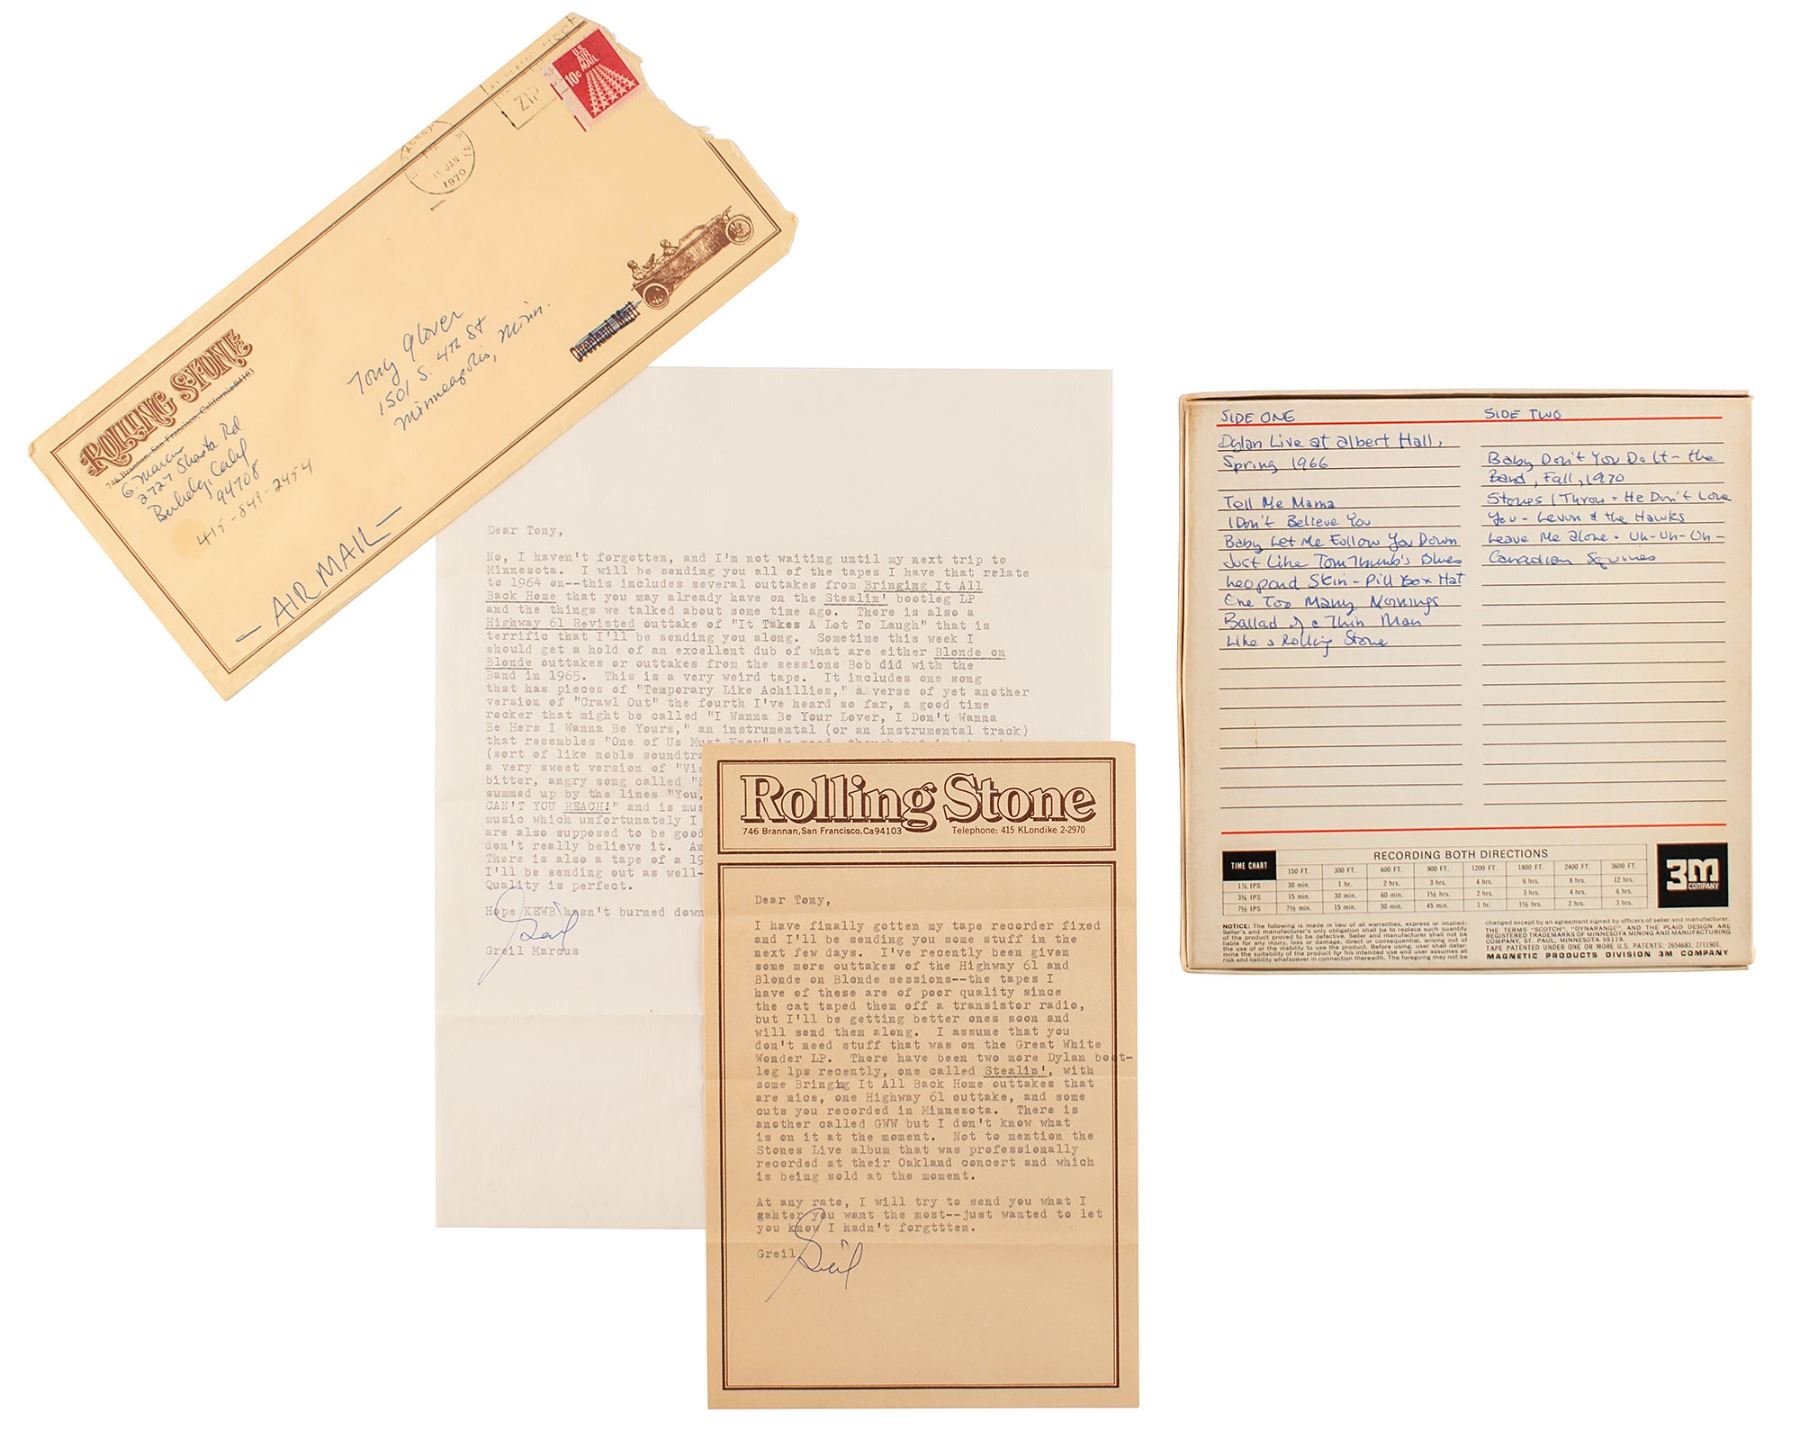 U.S. AIR MAIL
10c
ZIP
11 JAN
1970
ROLLING STONE
746 Brannan, San Francisco, California 94103
G. Marcus
2727 Shasta Rd
Berkeley, Calif
94708
415-849-2454
Tony Glover
1501 S. 4th St
Minneapolis, Minn.
Overland Mail
— AIR MAIL —
Dear Tony,
No, I haven't forgotten, and I'm not waiting until my next trip to
Minnesota. I will be sending you all of the tapes I have that relate
to 1964 on--this includes several outtakes from Bringing It All
Back Home that you may already have on the Stealin' bootleg LP
and the things we talked about some time ago. There is also a
Highway 61 Revisted outtake of "It Takes A Lot To Laugh" that is
terrific that I'll be sending you along. Sometime this week I
should get a hold of an excellent dub of what are either Blonde on
Blonde outtakes or outtakes from the sessions Bob did with the
Band in 1965. This is a very weird tape. It includes one song
that has pieces of "Temporary Like Achillies," a verse of yet another
version of "Crawl Out" the fourth I've heard so far, a good time
rocker that might be called "I Wanna Be Your Lover, I Don't Wanna
Be Hers I Wanna Be Yours," an instrumental (or an instrumental track)
that resembles "One of Us Must Know" in mood, though not
(sort of like noble soundtra
a very sweet version of "Vis
bitter, angry song called "
summed up by the lines "You,
CAN'T YOU REACH!" and is mus
music which unfortunately I
are also supposed to be good
don't really believe it. An
There is also a tape of a 19
I'll be sending out as well-
Quality is perfect.
Hope KEWB hasn't burned down
Greil
Greil Marcus
Rolling Stone
746 Brannan, San Francisco, Ca 94103 Telephone: 415 KLondike 2-2970
Dear Tony,
I have finally gotten my tape recorder fixed
and I'll be sending you some stuff in the
next few days. I've recently been given
some more outtakes of the Highway 61 and
Blonde on Blonde sessions--the tapes I
have of these are of poor quality since
the cat taped them off a transistor radio,
but I'll be getting better ones soon and
will send them along. I assume that you
don't need stuff that was on the Great White
Wonder LP. There have been two more Dylan boot-
leg lps recently, one called Stealin', with
some Bringing It All Back Home outtakes that
are nice, one Highway 61 outtake, and some
cuts you recorded in Minnesota. There is
another called GWW but I don't know what
is on it at the moment. Not to mention the
Stones Live album that was professionally
recorded at their Oakland concert and which
is being sold at the moment.
At any rate, I will try to send you what I
gahter you want the most--just wanted to let
you know I hadn't forgttten.
Greil
Greil
SIDE ONE
Dylan Live at Albert Hall,
Spring 1966
Tell Me Mama
I Don't Believe You
Baby Let Me Follow You Down
Just Like Tom Thumb's Blues
Leopard Skin-Pill Box Hat
One Too Many Mornings
Ballad of a Thin Man
Like a Rolling Stone
SIDE TWO
Baby Don't You Do It - the
Band, Fall, 1970
Stones I Throw - He Don't Love
You - Levon & the Hawks
Leave Me Alone - Uh-Uh-Uh -
Canadian Squires
RECORDING BOTH DIRECTIONS
TIME CHART 150 FT. 300 FT. 600 FT. 900 FT. 1200 FT. 1800 FT. 2400 FT. 3600 FT.
1⅞ IPS 30 min. 1 hr. 2 hrs. 3 hrs. 4 hrs. 6 hrs. 8 hrs. 12 hrs.
3¾ IPS 15 min. 30 min. 60 min. 1½ hrs. 2 hrs. 3 hrs. 4 hrs. 6 hrs.
7½ IPS 7½ min. 15 min. 30 min. 45 min. 1 hr. 1½ hrs. 2 hrs. 3 hrs.
3M
COMPANY
NOTICE: The following is made in lieu of all warranties, express or implied:
Seller's and manufacturer's only obligation shall be to replace such quantity
of the product proved to be defective. Seller and manufacturer shall not be
liable for any injury, loss or damage, direct or consequential, arising out of
the use of or the inability to use the product. Before using, user shall deter-
mine the suitability of the product for his intended use and user assumes all
risk and liability whatsoever in connection therewith. The foregoing may not be
changed except by an agreement signed by officers of seller and manufacturer.
THE TERMS "SCOTCH", "DYNARANGE", AND THE PLAID DESIGN ARE
REGISTERED TRADEMARKS OF MINNESOTA MINING AND MANUFACTURING
COMPANY, ST. PAUL, MINNESOTA 55119.
TAPE PATENTED UNDER ONE OR MORE U.S. PATENTS: 2654681, 2711901.
MAGNETIC PRODUCTS DIVISION 3M COMPANY